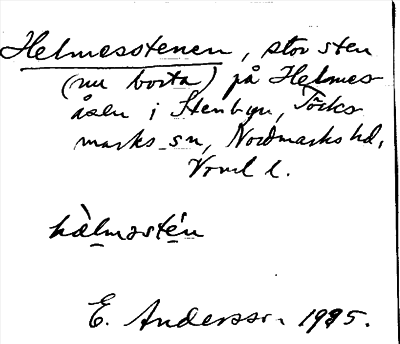 Helmesstenen, stor sten
(nu borta) på Helmes-
åsen i Stenbyn, Töcks-
marks sn, Nordmarks hd,
Värml l.
hàlmǝstén
E. Andersson 1915.